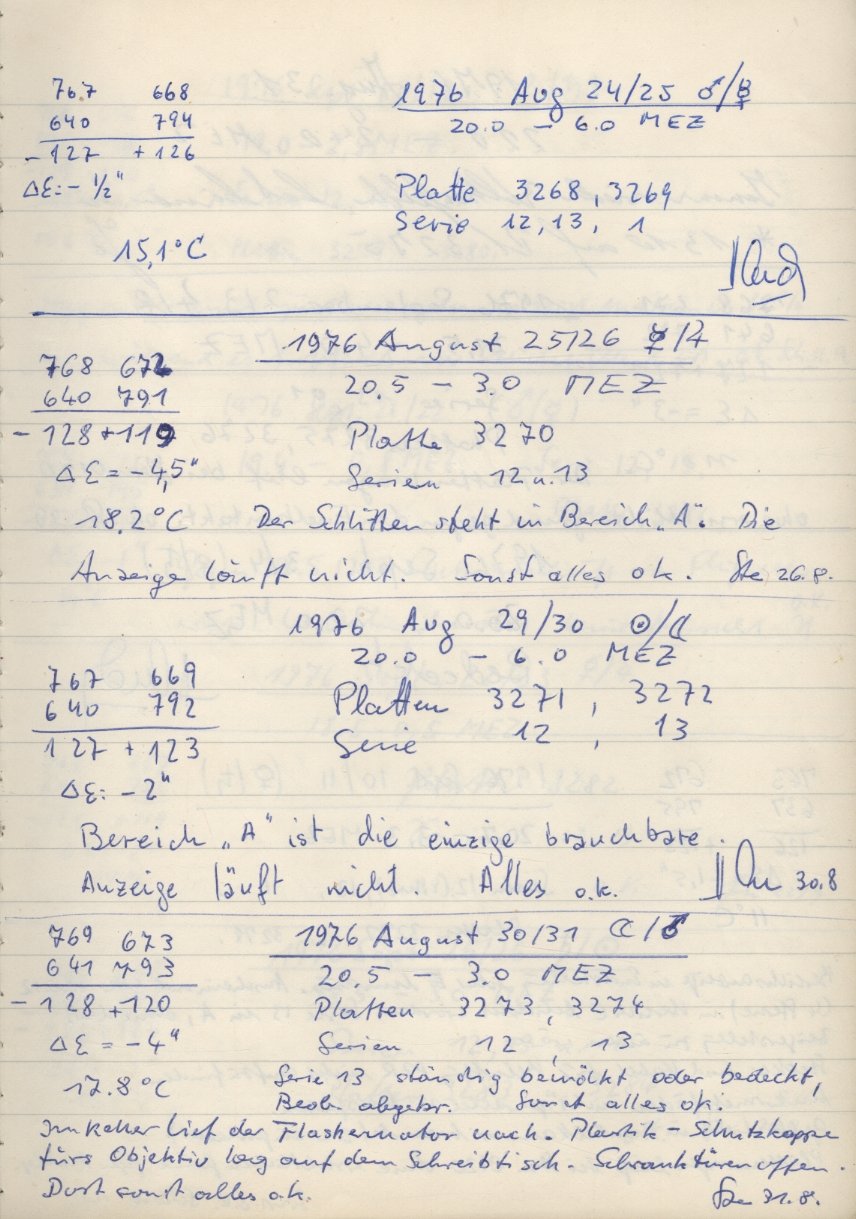 767 668 1976 Aug 24/25 ♂/☿
640 794 20.0 – 6.0 MEZ
-127 +126
Δε: - ½" Platte 3268, 3269
Serie 12, 13, 1
15,1°C
1976 August 25/26 ☿/♃
768 672
640 791 20.5 – 3.0 MEZ
- 128 +119 Platte 3270
Δε = -4,5" Serien 12 u. 13
18,2°C Der Schlitten steht in Bereich „A". Die
Anzeige läuft nicht. Sonst alles ok. Ste 26.8.
1976 Aug 29/30 ☉/☾
20.0 – 6.0 MEZ
767 669 Platten 3271, 3272
640 792 Serie 12, 13
127 + 123
Δε: -2"
Bereich „A" ist die einzige brauchbare.
Anzeige läuft nicht. Alles o.k. 30.8
769 673 1976 August 30/31 ☾/♂
641 793 20.5 – 3.0 MEZ
- 128 +120 Platten 3273, 3274
Δε = -4" Serien 12, 13
17.8°C Serie 13 ständig bewölkt oder bedeckt,
Beob. abgebr. Sonst alles ok.
Im Keller lief der Flashernator nach. Plastik-Schutzkappe
fürs Objektiv lag auf dem Schreibtisch. Schranktüren offen.
Dort sonst alles o.k.
Ste 31.8.